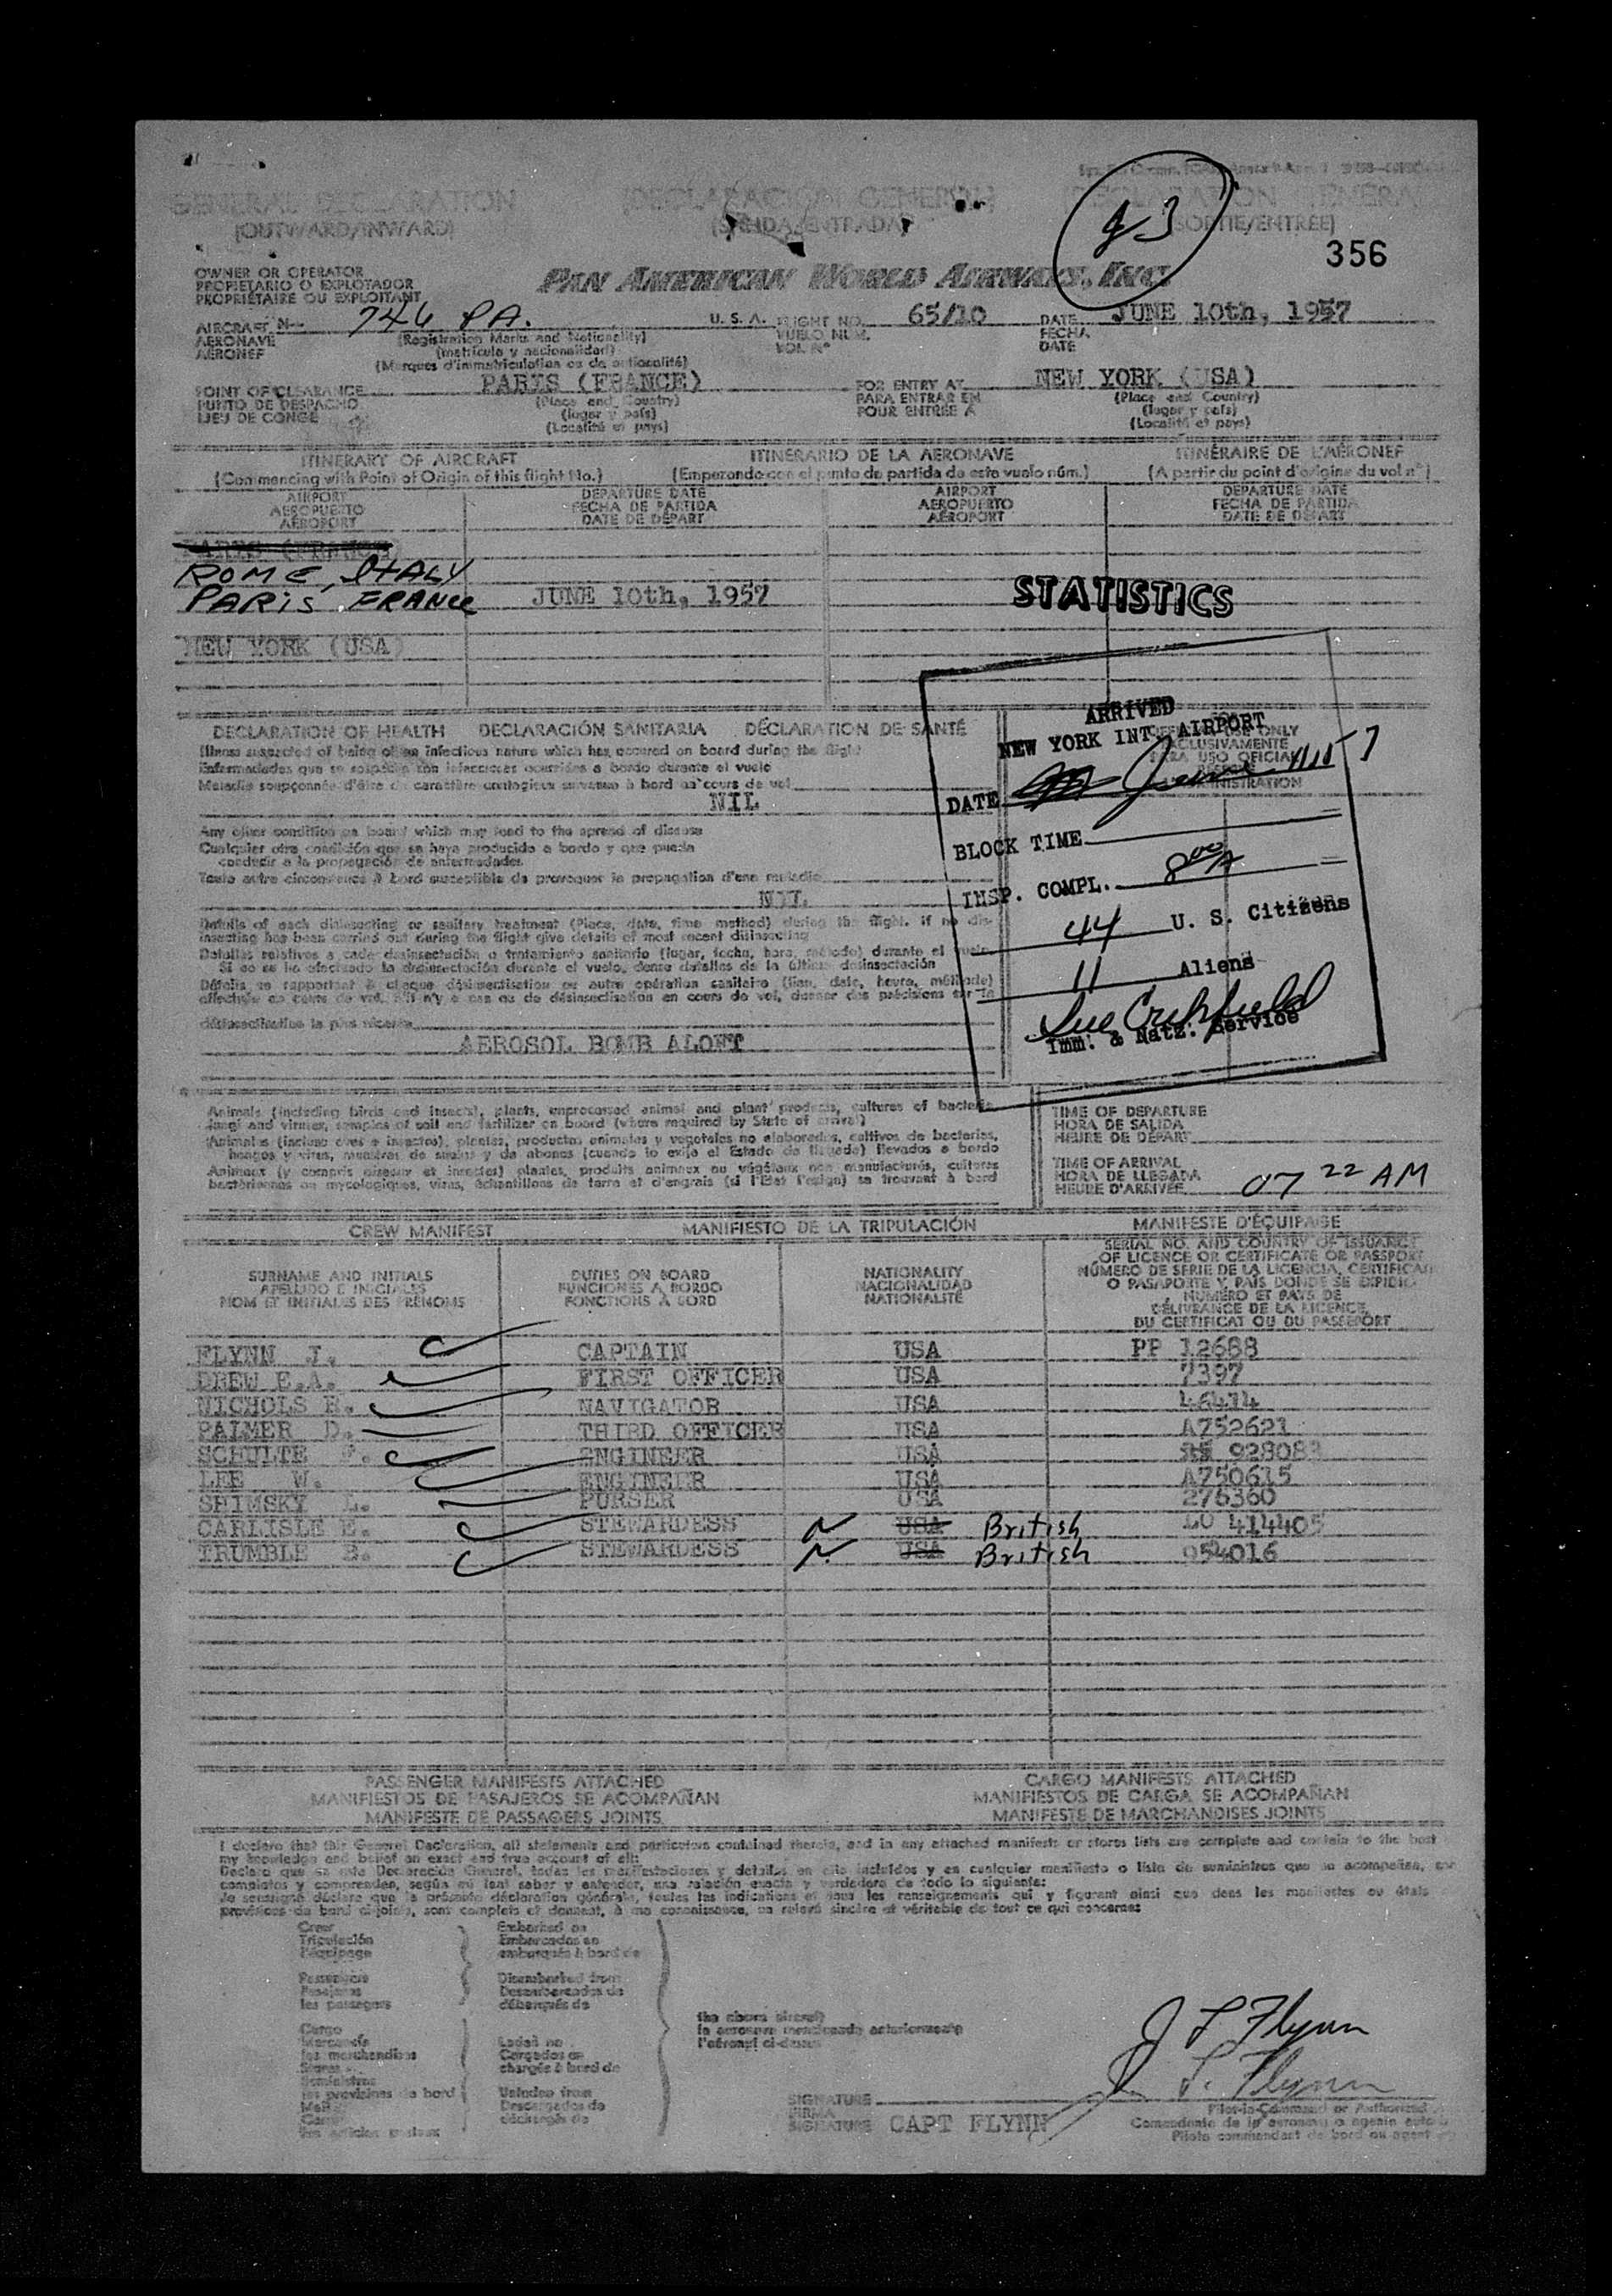 GENERAL DECLARATION
(OUTWARD/INWARD)
(DECLARACION GENERAL)
(SALIDA/ENTRADA)
(DECLARATION GENERALE)
(SORTIE/ENTRÉE)
356
OWNER OR OPERATOR
PROPIETARIO O EXPLOTADOR
PROPRIÉTAIRE OU EXPLOITANT
PAN AMERICAN WORLD AIRWAYS, INC
AIRCRAFT N-- 746 PA. U. S. A. FLIGHT NO. 65/10 DATE JUNE 10th, 1957
AERONAVE (Registration Marks and Nationality) VUELO NUM. FECHA
AÉRONEF (matrícula y nacionalidad) VOL Nº DATE
(Marques d'immatriculation ou de nationalité)
POINT OF CLEARANCE PARIS (FRANCE) FOR ENTRY AT NEW YORK (USA)
PUNTO DE DESPACHO (Place and Country) PARA ENTRAR EN (Place and Country)
LIEU DE CONGÉ (lugar y país) POUR ENTRÉE A (lugar y país)
(Localité et pays) (Localité et pays)
ITINERARY OF AIRCRAFT ITINERARIO DE LA AERONAVE ITINÉRAIRE DE L'AÉRONEF
(Commencing with Point of Origin of this flight No.) (Empezando con el punto de partida de este vuelo núm.) (A partir du point d'origine du vol nº)
AIRPORT DEPARTURE DATE AIRPORT DEPARTURE DATE
AEROPUERTO FECHA DE PARTIDA AEROPUERTO FECHA DE PARTIDA
AÉROPORT DATE DE DÉPART AÉROPORT DATE DE DÉPART
PARIS (FRANCE)
ROME, ITALY
PARIS FRANCE JUNE 10th, 1957
STATISTICS
NEW YORK (USA)
DECLARATION OF HEALTH DECLARACIÓN SANITARIA DÉCLARATION DE SANTÉ
Illness suspected of being of an infectious nature which has occured on board during the flight
Enfermedades que se sospecha son infecciosas ocurridas a bordo durante el vuelo
Maladie soupçonnée d'être de caractère contagieux survenue à bord au cours de vol
NIL
Any other condition on board which may lead to the spread of disease
Cualquier otra condición que se haya producido a bordo y que pueda
conducir a la propagación de enfermedades
Toute autre circonstance à bord susceptible de provoquer la propagation d'une maladie
NIL
Details of each disinsecting or sanitary treatment (Place, date, time method) during the flight. If no dis-
insecting has been carried out during the flight give details of most recent disinsecting
Detalles relativos a cada desinsectación o tratamiento sanitario (lugar, fecha, hora, método) durante el vuelo
Si no se ha efectuado la desinsectación durante el vuelo, dense detalles de la última desinsectación
Détails se rapportant à chaque désinsectisation ou autre opération sanitaire (lieu, date, heure, méthode)
effectuée au cours de vol. S'il n'y a pas eu de désinsectisation en cours de vol, donner des précisions sur la
désinsectisation la plus récente
AEROSOL BOMB ALOFT
ARRIVED
NEW YORK INT. AIRPORT
DATE June 11/57
BLOCK TIME
INSP. COMPL. 8 00 A
44 U. S. Citizens
11 Aliens
Imm. & Natz. Service
Animals (including birds and insects), plants, unprocessed animal and plant products, cultures of bacteria,
fungi and viruses, samples of soil and fertilizer on board (where required by State of arrival)
Animales (incluso aves e insectos), plantas, productos animales y vegetales no elaborados, cultivos de bacterias,
hongos y virus, muestras de suelos y de abonos (cuando lo exija el Estado de llegada) llevados a bordo
Animaux (y compris oiseaux et insectes) plantes, produits animaux ou végétaux non manufacturés, cultures
bactériennes ou mycologiques, virus, échantillons de terre et d'engrais (si l'État l'exige) se trouvant à bord
TIME OF DEPARTURE
HORA DE SALIDA
HEURE DE DÉPART
TIME OF ARRIVAL
HORA DE LLEGADA
HEURE D'ARRIVÉE 07 22 AM
CREW MANIFEST MANIFIESTO DE LA TRIPULACIÓN MANIFESTE D'ÉQUIPAGE
SURNAME AND INITIALS
APELLIDO E INICIALES
NOM ET INITIALES DES PRÉNOMS
DUTIES ON BOARD
FUNCIONES A BORDO
FONCTIONS À BORD
NATIONALITY
NACIONALIDAD
NATIONALITÉ
SERIAL NO. AND COUNTRY OF ISSUANCE
OF LICENCE OR CERTIFICATE OR PASSPORT
NÚMERO DE SERIE DE LA LICENCIA, CERTIFICADO
O PASAPORTE Y PAÍS DONDE SE EXPIDIO
NUMÉRO ET PAYS DE
DÉLIVRANCE DE LA LICENCE,
DU CERTIFICAT OU DU PASSEPORT
FLYNN J. CAPTAIN USA PP 12688
DREW E.A. FIRST OFFICER USA 7397
NICHOLS H. NAVIGATOR USA 46414
PALMER D. THIRD OFFICER USA A752621
SCHULTE F. ENGINEER USA 928083
LEE W. ENGINEER USA A750615
SHIMSKY L. PURSER USA 276360
CARLISLE E. STEWARDESS USA British LO 414405
TRUMBLE B. STEWARDESS USA British 954016
PASSENGER MANIFESTS ATTACHED CARGO MANIFESTS ATTACHED
MANIFIESTOS DE PASAJEROS SE ACOMPAÑAN MANIFIESTOS DE CARGA SE ACOMPAÑAN
MANIFESTE DE PASSAGERS JOINTS MANIFESTE DE MARCHANDISES JOINTS
I declare that this General Declaration, all statements and particulars contained therein, and in any attached manifests or stores lists are complete and contain to the best
my knowledge and belief an exact and true account of all:
Declaro que en esta Declaración General, todas las manifestaciones y detalles en ella incluidos y en cualquier manifiesto o lista de suministros que se acompañan, son
completos y comprenden, según mi leal saber y entender, una relación exacta y verdadera de todo lo siguiente:
Je soussigné déclare que la présente déclaration générale, toutes les indications et tous les renseignements qui y figurent ainsi que dans les manifestes ou états
provisions de bord ci-joints, sont complets et donnent, à ma connaissance, un relevé sincère et véritable de tout ce qui concerne:
Crew Embarked on
Tripulación Embarcados en
l'équipage embarqués à bord de
Passengers Disembarked from
Pasajeros Desembarcados de
les passagers débarqués de
the above aircraft
la aeronave mencionada anteriormente
l'aéronef ci-dessus
Cargo
Mercancía Laden on
les marchandises Cargados en
Stores chargés à bord de
Suministros
les provisions de bord Unladen from
Mail Descargados de
Correo déchargés de
J F Flynn
J. F. Flynn
SIGNATURE
FIRMA
SIGNATURE CAPT FLYNN
Pilot-in-Command or Authorized
Comandante de la aeronave o agente auto
Pilote commandant de bord ou agent